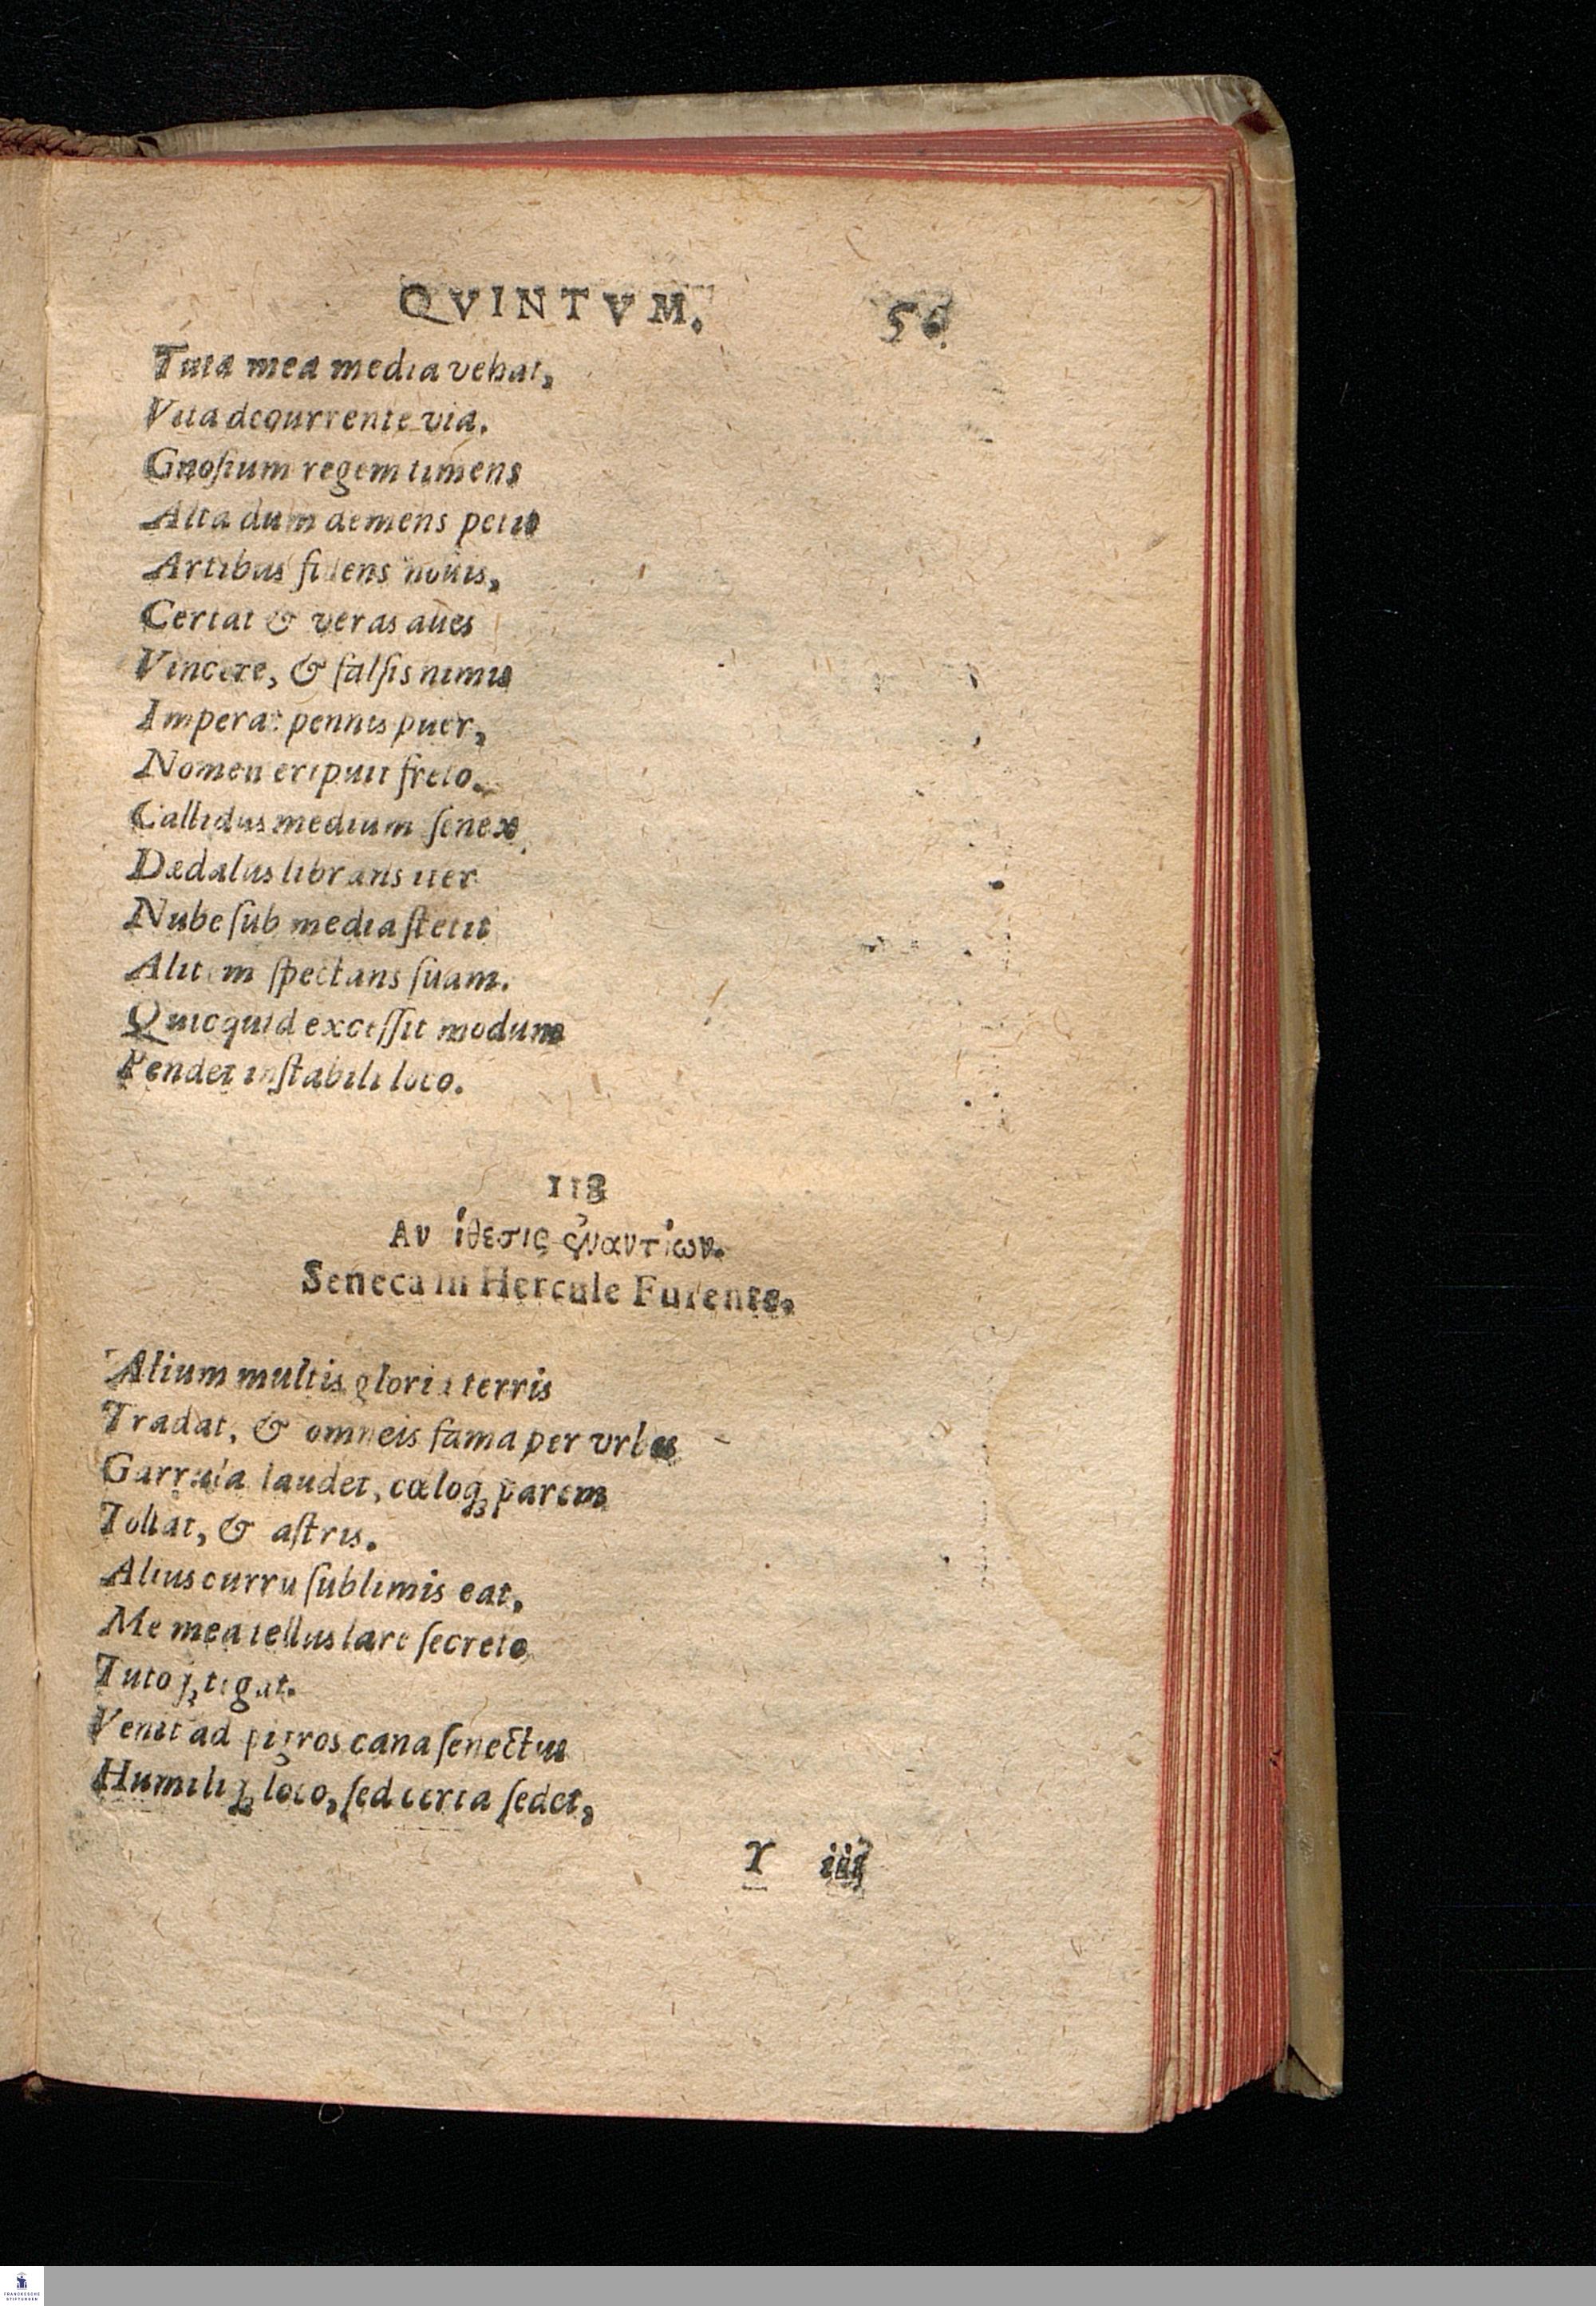 QVINTVM. 56
Tuta mea media vehat,
Vita decurrente via.
Gnoſium regem timens
Alta dum demens petit
Artibus fidens nouis,
Certat & veras aues
Vincere, & falſis nimis
Imperat pennis puer,
Nomen eripuit freto.
Callidus medium ſenex
Dædalus librans iter
Nube ſub media ſtetit
Alitem ſpectans ſuam.
Quicquid exceſſit modum
Pendet inſtabili loco.
118
Αντίθεσις ἐναντίων.
Seneca in Hercule Furente.
Alium multis gloria terris
Tradat, & omneis fama per vrbes
Garrula laudet, cœloq; parem
Tollat, & aſtris.
Alius curru ſublimis eat,
Me mea tellus lare ſecreto
Tutoq; tegat.
Venit ad pigros cana ſenectus
Humiliq; loco, ſed certa ſedet,
Y iii
FRANCKESCHE
STIFTUNGEN